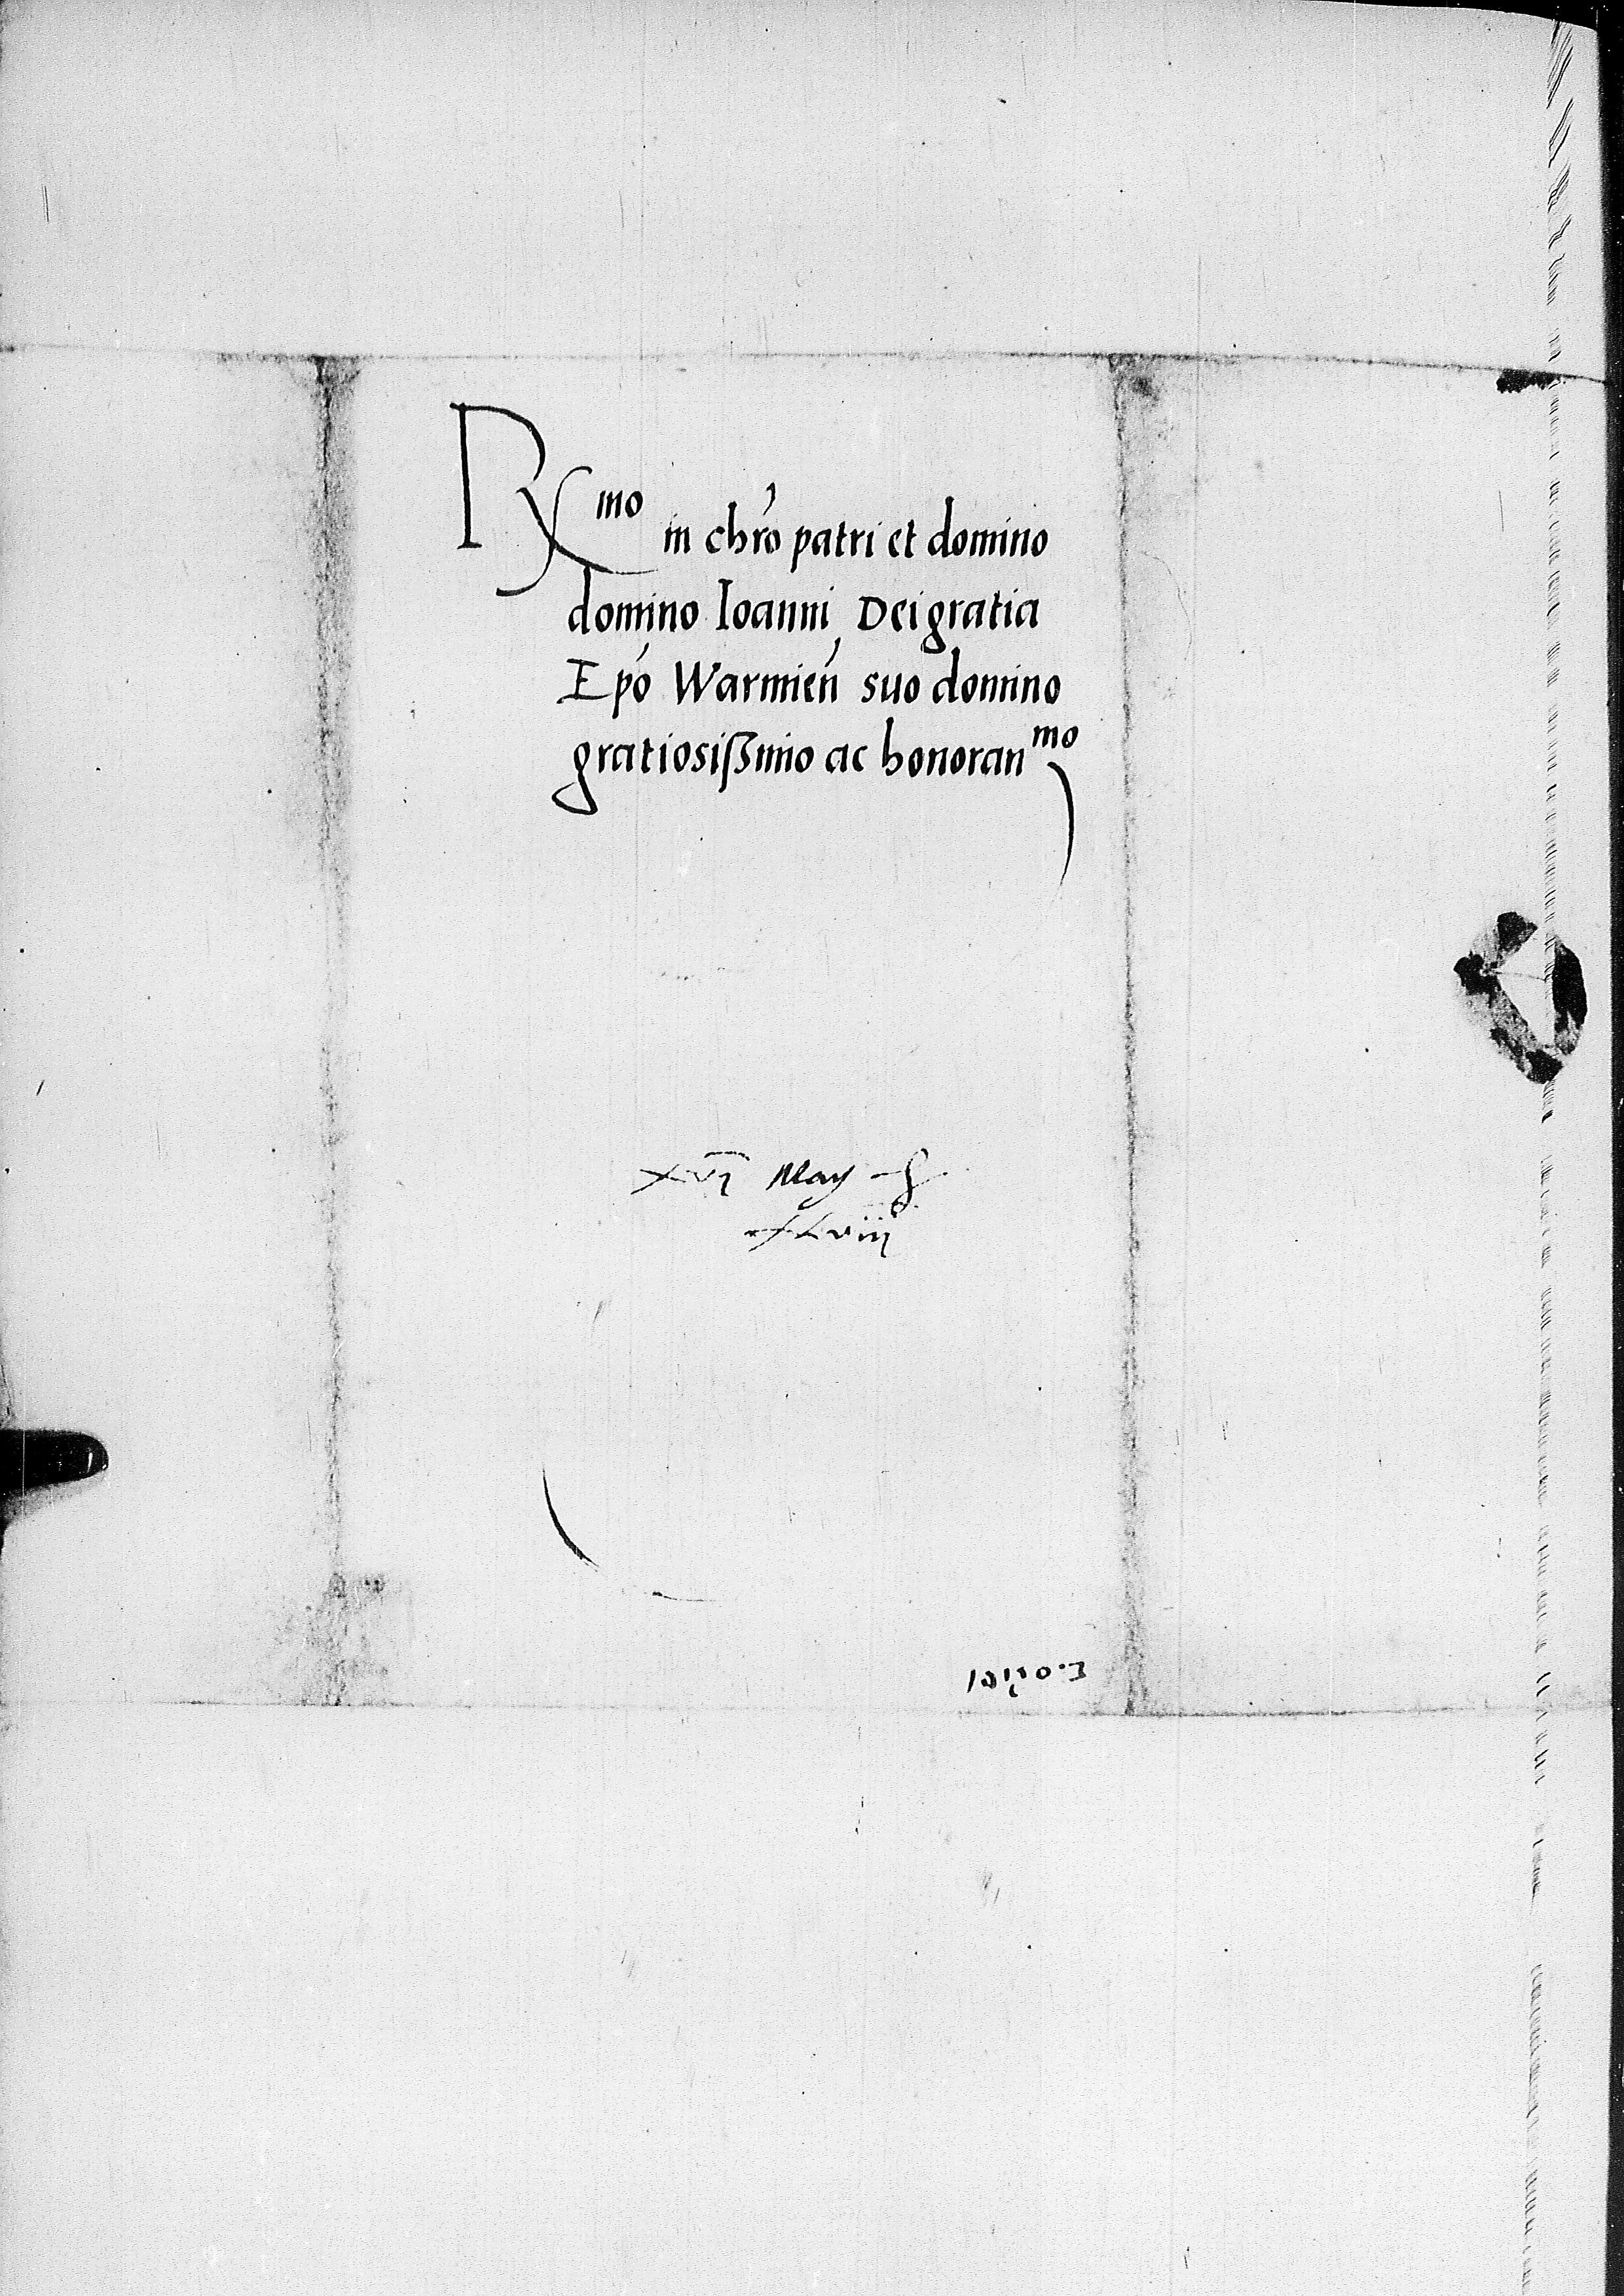 R<sup>mo</sup> in chr̃o patri et domino
domino Ioanni Dei gratia
Ep̃o Warmieñ suo domino
gratiosißimo ac honoran<sup>mo</sup>
xvi May
xlviii